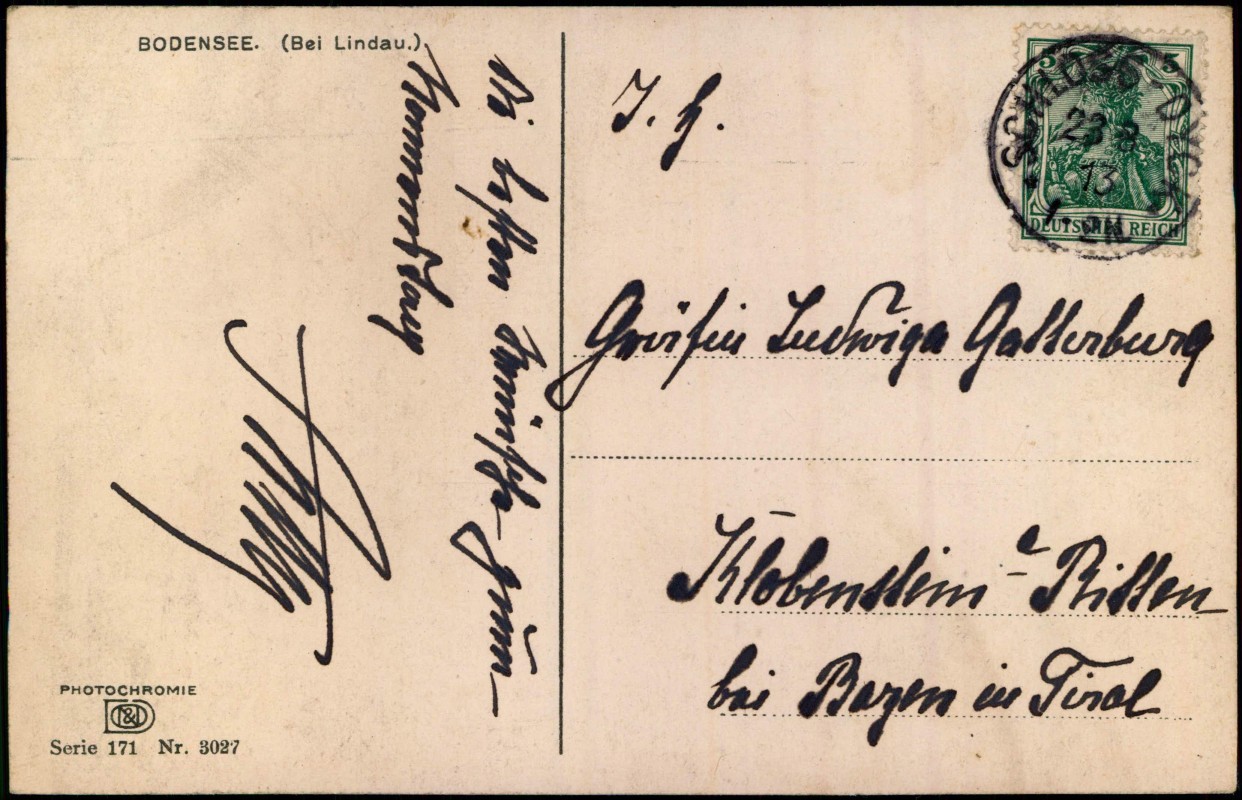 BODENSEE. (Bei Lindau.)
Die besten Wünsche
I. H.
Gräfin Ludwiga Gatterburg
Klobenstein a Ritten
bei Bozen in Tirol
5 5
DEUTSCHES REICH
SCHLOSS
23 8
13
PHOTOCHROMIE
Serie 171 Nr. 3027